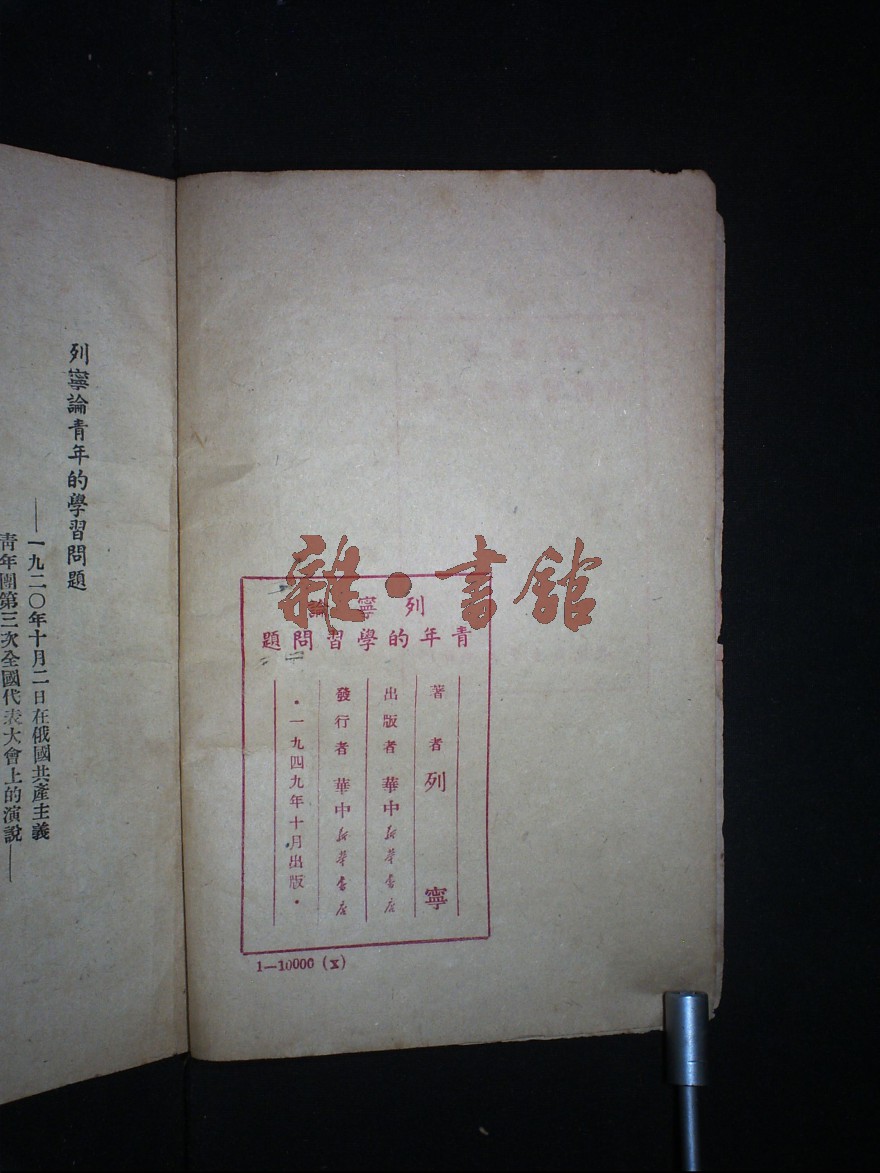 列寧論青年的學習問題
——一九二〇年十月二日在俄國共產主義
青年團第三次全國代表大會上的演說——
雜·書館
列寧論
青年的學習問題
著者列寧
出版者華中新華書店
發行者華中新華書店
·一九四九年十月出版·
1—10000 (X)